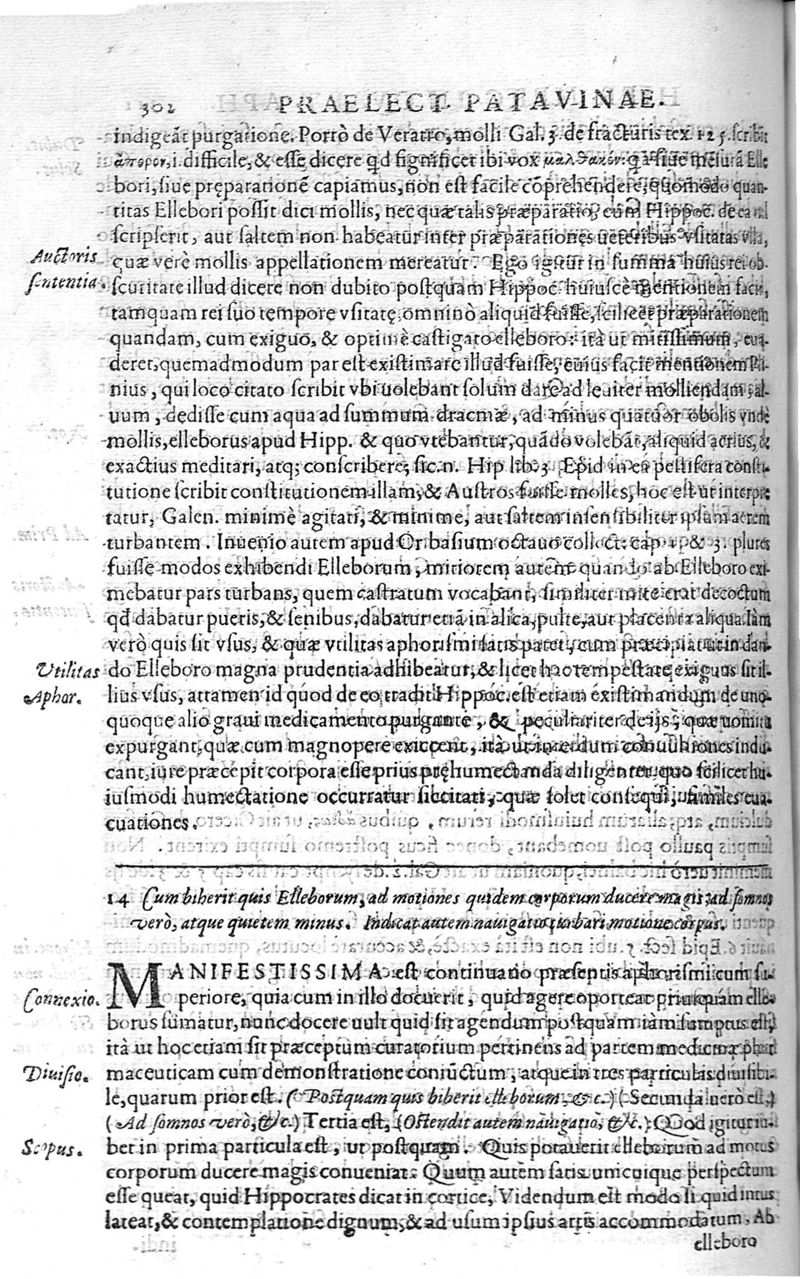 302 PRAELECT. PATAVINAE.
indigeāt purgatione. Porrò de Veratro, molli Gal. 3. de fracturis tex. 125. scribit
ἄπορον, i. difficile, & esse dicere qd significet ibi vox μαλθακόν: siue mēsurā Elle
bori, siue pręparationē capiamus, non est facile cōprehendere, quomodo quan-
titas Ellebori possit dici mollis, nec quæ talis præparatio, cum Hippoc. de ea nil
scripserit, aut saltem non habeatur inter præparationes ueteribus vsitatas vlla,
Auctoris sententia.
quæ verè mollis appellationem mereatur. Ego igitur in summa huius rei ob-
scuritate illud dicere non dubito postquam Hippoc. huiusce mentionem facit,
tamquam rei suo tempore vsitatę, omninò aliquid fuisse, scilicet præparationem
quandam, cum exiguo, & optimè castigato elleboro: ità ut mitissimum, eua-
deret, quemadmodum par est existimare illud fuisse, cuius facit mentionem Pli-
nius, qui loco citato scribit vbi uolebant solum dare ad leuiter molliendam al-
uum, dedisse cum aqua ad summum dracmæ, ad minus quatuor obolis vnde
mollis, elleborus apud Hipp. & quo vtebantur, quādo volebāt, aliquid acrius, &
exactius meditari, atq; conscribere, sic. n. Hip lib. 3. Epid in ea pestifera consti-
tutione scribit constitutionem illam, & Austros fuisse molles, hoc est ut interpre
tatur, Galen. minimè agitati, & minime, aut saltem insensibiliter ipsum aerem
turbantem. Inuenio autem apud Oribasium octauo collect: cap. 1. & 3. plures
fuisse modos exhibendi Elleborum, mitiorem autem quando ab Elleboro exi-
mebatur pars turbans, quem castratum vocabant, similiter mite erat decoctum
qd dabatur pueris, & senibus, dabatur etiā in alica, pulte, aut placenta aliqua. Iam
verò quis sit vsus, & quæ vtilitas aphorismi satis patet, cum præcipiat ut in dan-
Utilitas Aphor.
do Elleboro magna prudentia adhibeatur, & licet hac tempestate exiguus sit il-
lius vsus, attamen id quod de eo tradit Hippoc. est etiam existimandum de uno
quoque alio graui medicamento purgante, & peculiariter de ijs, quæ uomitu
expurgant, quæ cum magnopere exiccent, ità ut interdum conuulsiones indu-
cant, iure præcepit corpora esse prius pręhumectanda diligenter, quo scilicet hu-
iusmodi humectatione occurratur siccitati, quæ solet consequi, similes eua-
cuationes.
14 Cum biberit quis Elleborum, ad motiones quidem corporum ducere magis; ad somnos
verò, atque quietem minus. Indicat autem nauigatio turbari motione corpus.
MANIFESTISSIMA est continuatio præsentis aphorismi cum su-
Connexio.
periore, quia cum in illo docuerit, quid agere oporteat priusquam elle-
borus sumatur, nunc docere uult quid sit agendum postquam iam sumptus est,
ità ut hoc etiam sit præceptum curatorium pertinens ad partem medicinæ phar
Diuisio.
maceuticam cum demonstratione coniūctum, atque in tres particulas diuisibi-
le, quarum prior est. (Postquam quis biberit elleborum, &c.) (Secunda uerò est,)
(Ad somnos verò, &c.) Tertia est, (Ostendit autem nauigatio, &c.) Quod igitur iu-
Scopus.
bet in prima particula est, ut postquam. Quis potauerit elleborum ad motus
corporum ducere magis conueniat. Quum autem satis unicuique perspectum
esse queat, quid Hippocrates dicat in cortice, Videndum est modo si quid intus
lateat, & contemplatione dignum, & ad usum ipsius artis accommodatum. Ab
elleboro